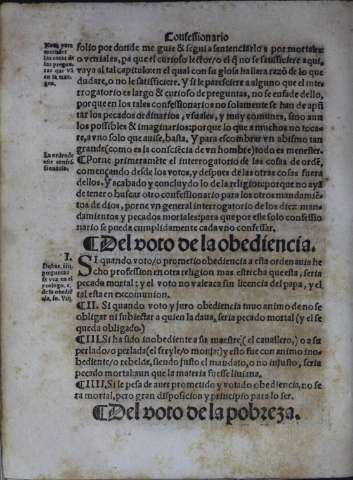 Confessionario
folio por donde me guie & segui a sentenciarlo a por mortales:
o veniales, pa que el curioso lector/o el q̃ no se satisficiere aqui,
vaya al tal capitulo: en el qual con su glosa hallara razõ de lo que
dudare, o no le satisficiere. Y si le paresciere a alguno que el inter-
rogatorio es largo & curioso de preguntas, no se enfade dello,
porque en los tales confessionarios no solamente se han de apũ
tar los pecados ordinarios, vsuales, y muy comunes, sino aun
los possibles & imaginarios: porque lo que a muchos no toca-
re, a vno solo que auise, basta. Y para escombrar vn abismo tan
grande (como es la consciẽcia de vn hombre) todo es menester.
Porne primeramẽte el interrogatorio de las cosas de ordẽ,
començando desde los votos, y despues de las otras cosas fuera
dellos. Y acabado y concluydo lo de la religion: porque no aya
de tener o buscar otro confessionario para los otros mandamiẽ
tos de dios, porne vn general interrogatorio de los diez man-
damientos y pecados mortales: para que por este solo confessio
nario se pueda cumplidamente cada vno confessar.
Del voto de la obediencia.
SI quando voto/o prometio obediencia a esta orden auia he
cho profession en otra religion mas estrecha que esta, seria
pecado mortal: y el voto no valeaca sin licencia del papa, y el
tal esta en excomunion.
II. Si quando voto y juro obediencia tuuo animo de no se
obligar ni subjectar a quien la daua, seria pecado mortal (y el se
queda obligado.)
III. Si ha sido inobediente a su maestre (el cauallero,) o a su
perlado/o perlada (el freyle/o monja:) y esto fue con animo ino-
bediente/o rebelde, siendo justo el mandato, o no injusto, seria
pecado mortal: aun que la materia fuesse liuiana.
IIII. Si le pesa de auer prometido y votado obediencia, no se
ra mortal, pero gran disposicion y principio para lo ser.
Del voto de la pobreza.
Nota para
entender
las cotas de
las pregun-
tas que vã
en la mar-
gen.
I.